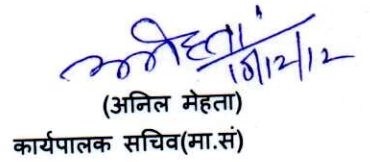 (अनिल मेहता)
कार्यपालक सचिव(मा.सं)